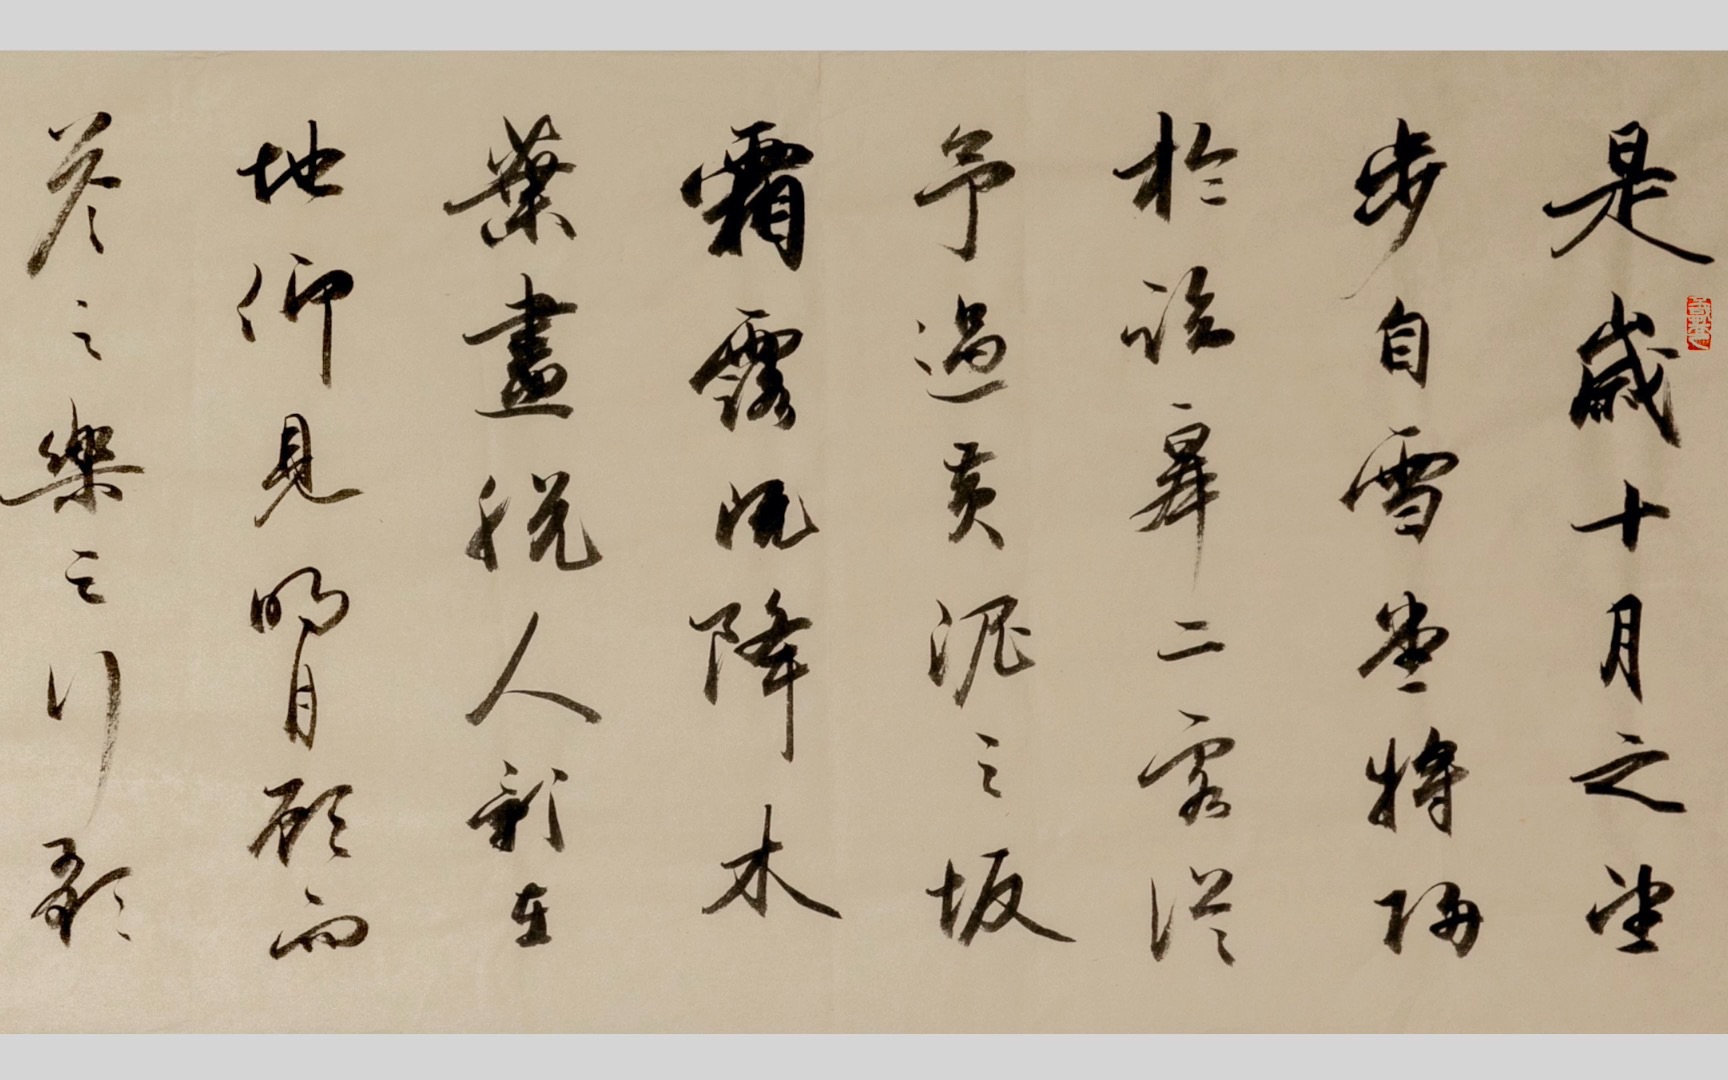 是歲十月之望
步自雪堂將歸
於臨臯二客從
予過黄泥之坂
霜露既降木
葉盡脫人影在
地仰見明月顧而
之樂之行歌